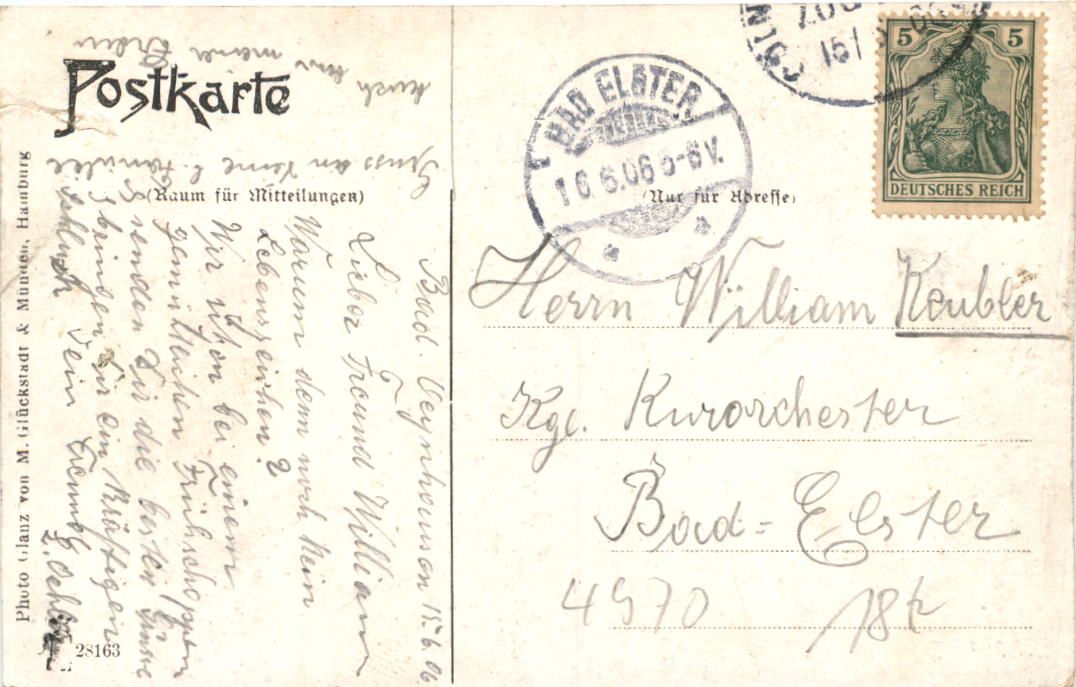 Postkarte
(Raum für Mitteilungen)
(Nur für Adresse)
BAD ELSTER
16.6.06 5-6 V.
5 5
DEUTSCHES REICH
Bad. Oeynhausen 15.6.06
Lieber Freund William
Warum denn noch kein
Lebenszeichen?
Wir sitzen bei einem
gemütlichen Frühschoppen
senden Dir die besten Grüsse
bringen Dir ein kräftigen
Schluck Dein Freund
Gruss an Deine l. Familie
auch von meiner
Herrn William Keubler
Kgl. Kurorchester
Bad=Elster
4970
Photo Glanz von M. Glückstadt & Münden, Hamburg
28163